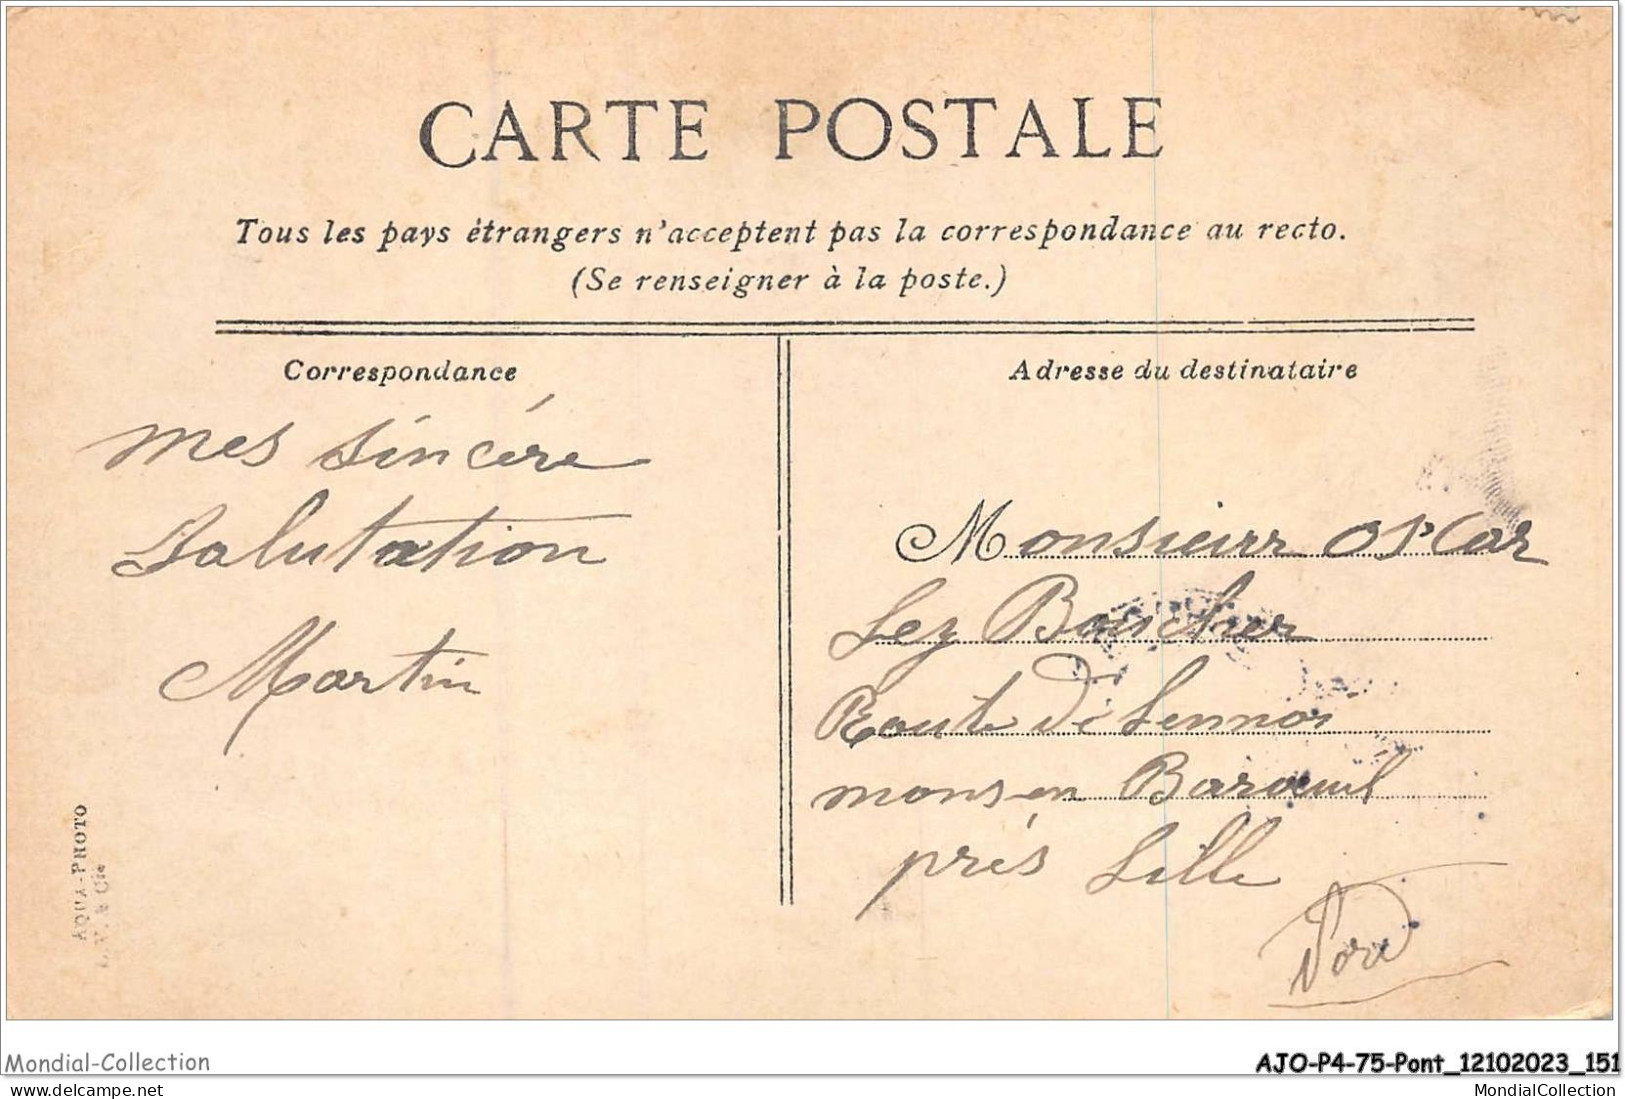 CARTE POSTALE
Tous les pays étrangers n'acceptent pas la correspondance au recto.
(Se renseigner à la poste.)
Correspondance
mes sincére
Salutation
Martin
AQUA-PHOTO
L. V. & Cie
Adresse du destinataire
Monsieur Oscar
Ley
Route de
mons en Baroeuil
prés Lille
Nord
Mondial-Collection
AJO-P4-75-Pont_12102023_151
www.delcampe.net
MondialCollection